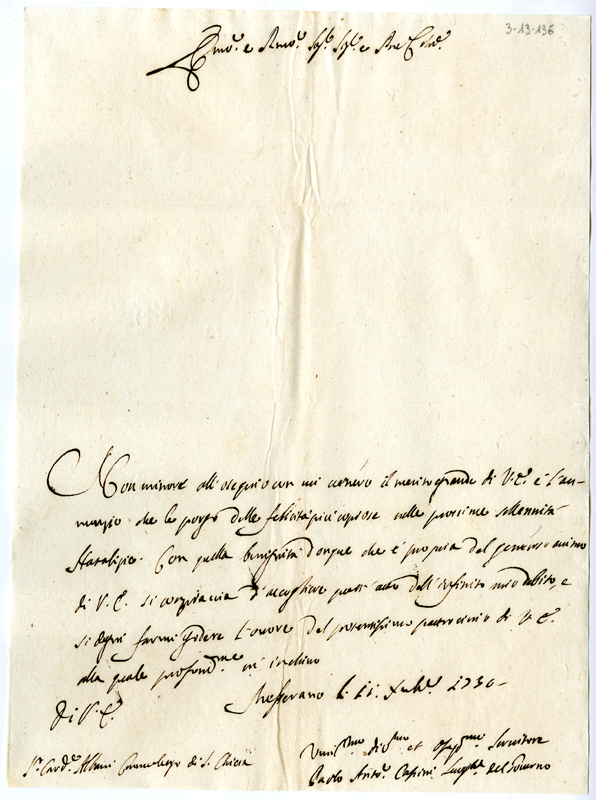 3-13-136
Em.o e R.mo Sig.r Sig.r e P.ne Col.mo
Non minore all'ossequio con cui venero il merito grande di V. E. è l'an-
nunzio che le porgo delle felicità più copiose nelle prossime sollennità
Natalizie. Con quella benignità dunque che è propria del generoso animo
di V. E. si compiaccia d'accogliere quest'atto dell'infinito mio debito, e
si degni farmi godere l'onore del potentissimo patrocinio di V. E.
alla quale profond.me m'inchino
Di V. E. li 11 Xmbre 1730
S.r Card.e Albani Camerlengo di S. Chiesa
Umil.mo Div.mo et Osseq.mo Servitore
Paolo Ant.o Luogh.te del Governo